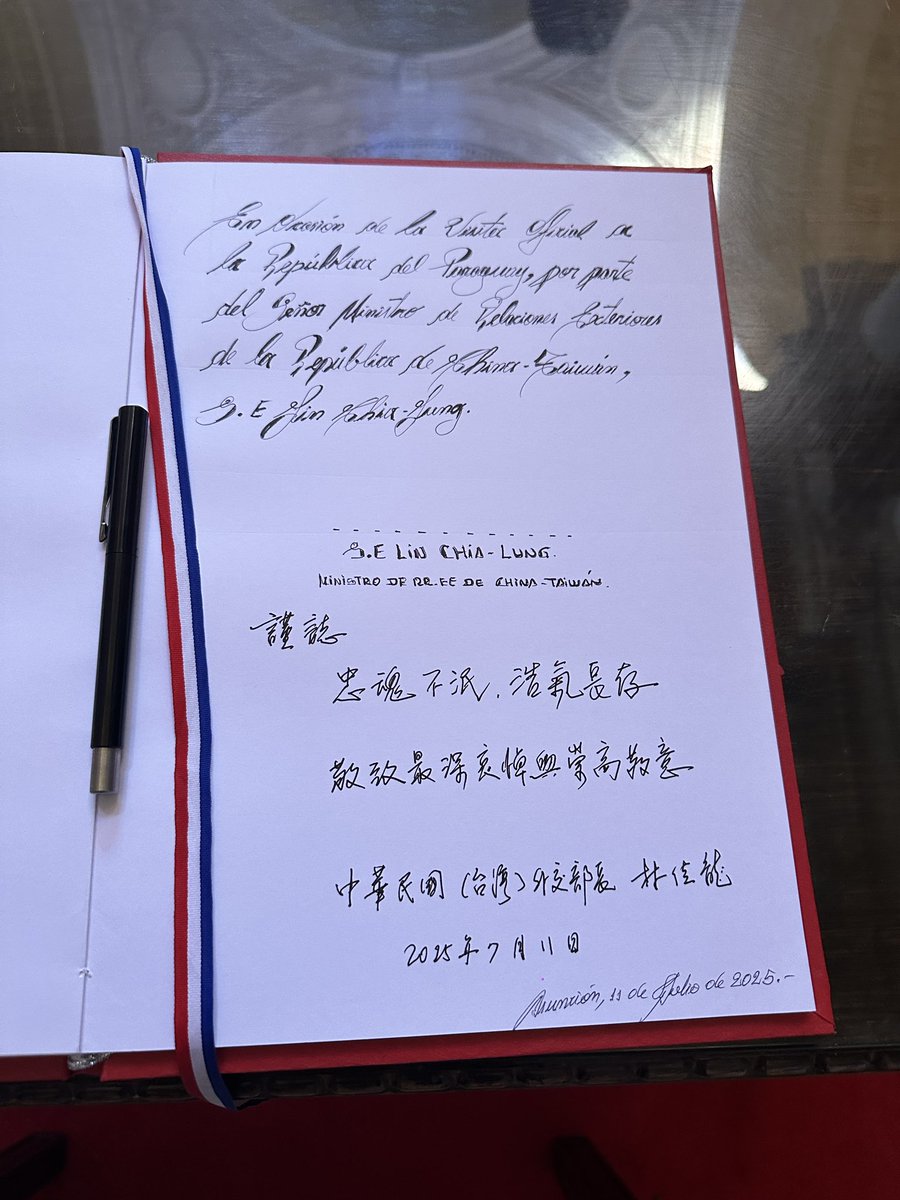 En Ocasión de la Visita Oficial a
la República del Paraguay, por parte
del Señor Ministro de Relaciones Exteriores
de la República de China-Taiwán,
S.E Lin Chia-Lung.
S.E LIN CHIA-LUNG.
MINISTRO DE RR.EE DE CHINA-TAIWÁN.
謹誌
忠魂不泯，浩氣長存
敬致最深哀悼與崇高敬意
中華民國（台灣）外交部長 林佳龍
2025年7月11日
Asunción, 11 de Julio de 2025.-